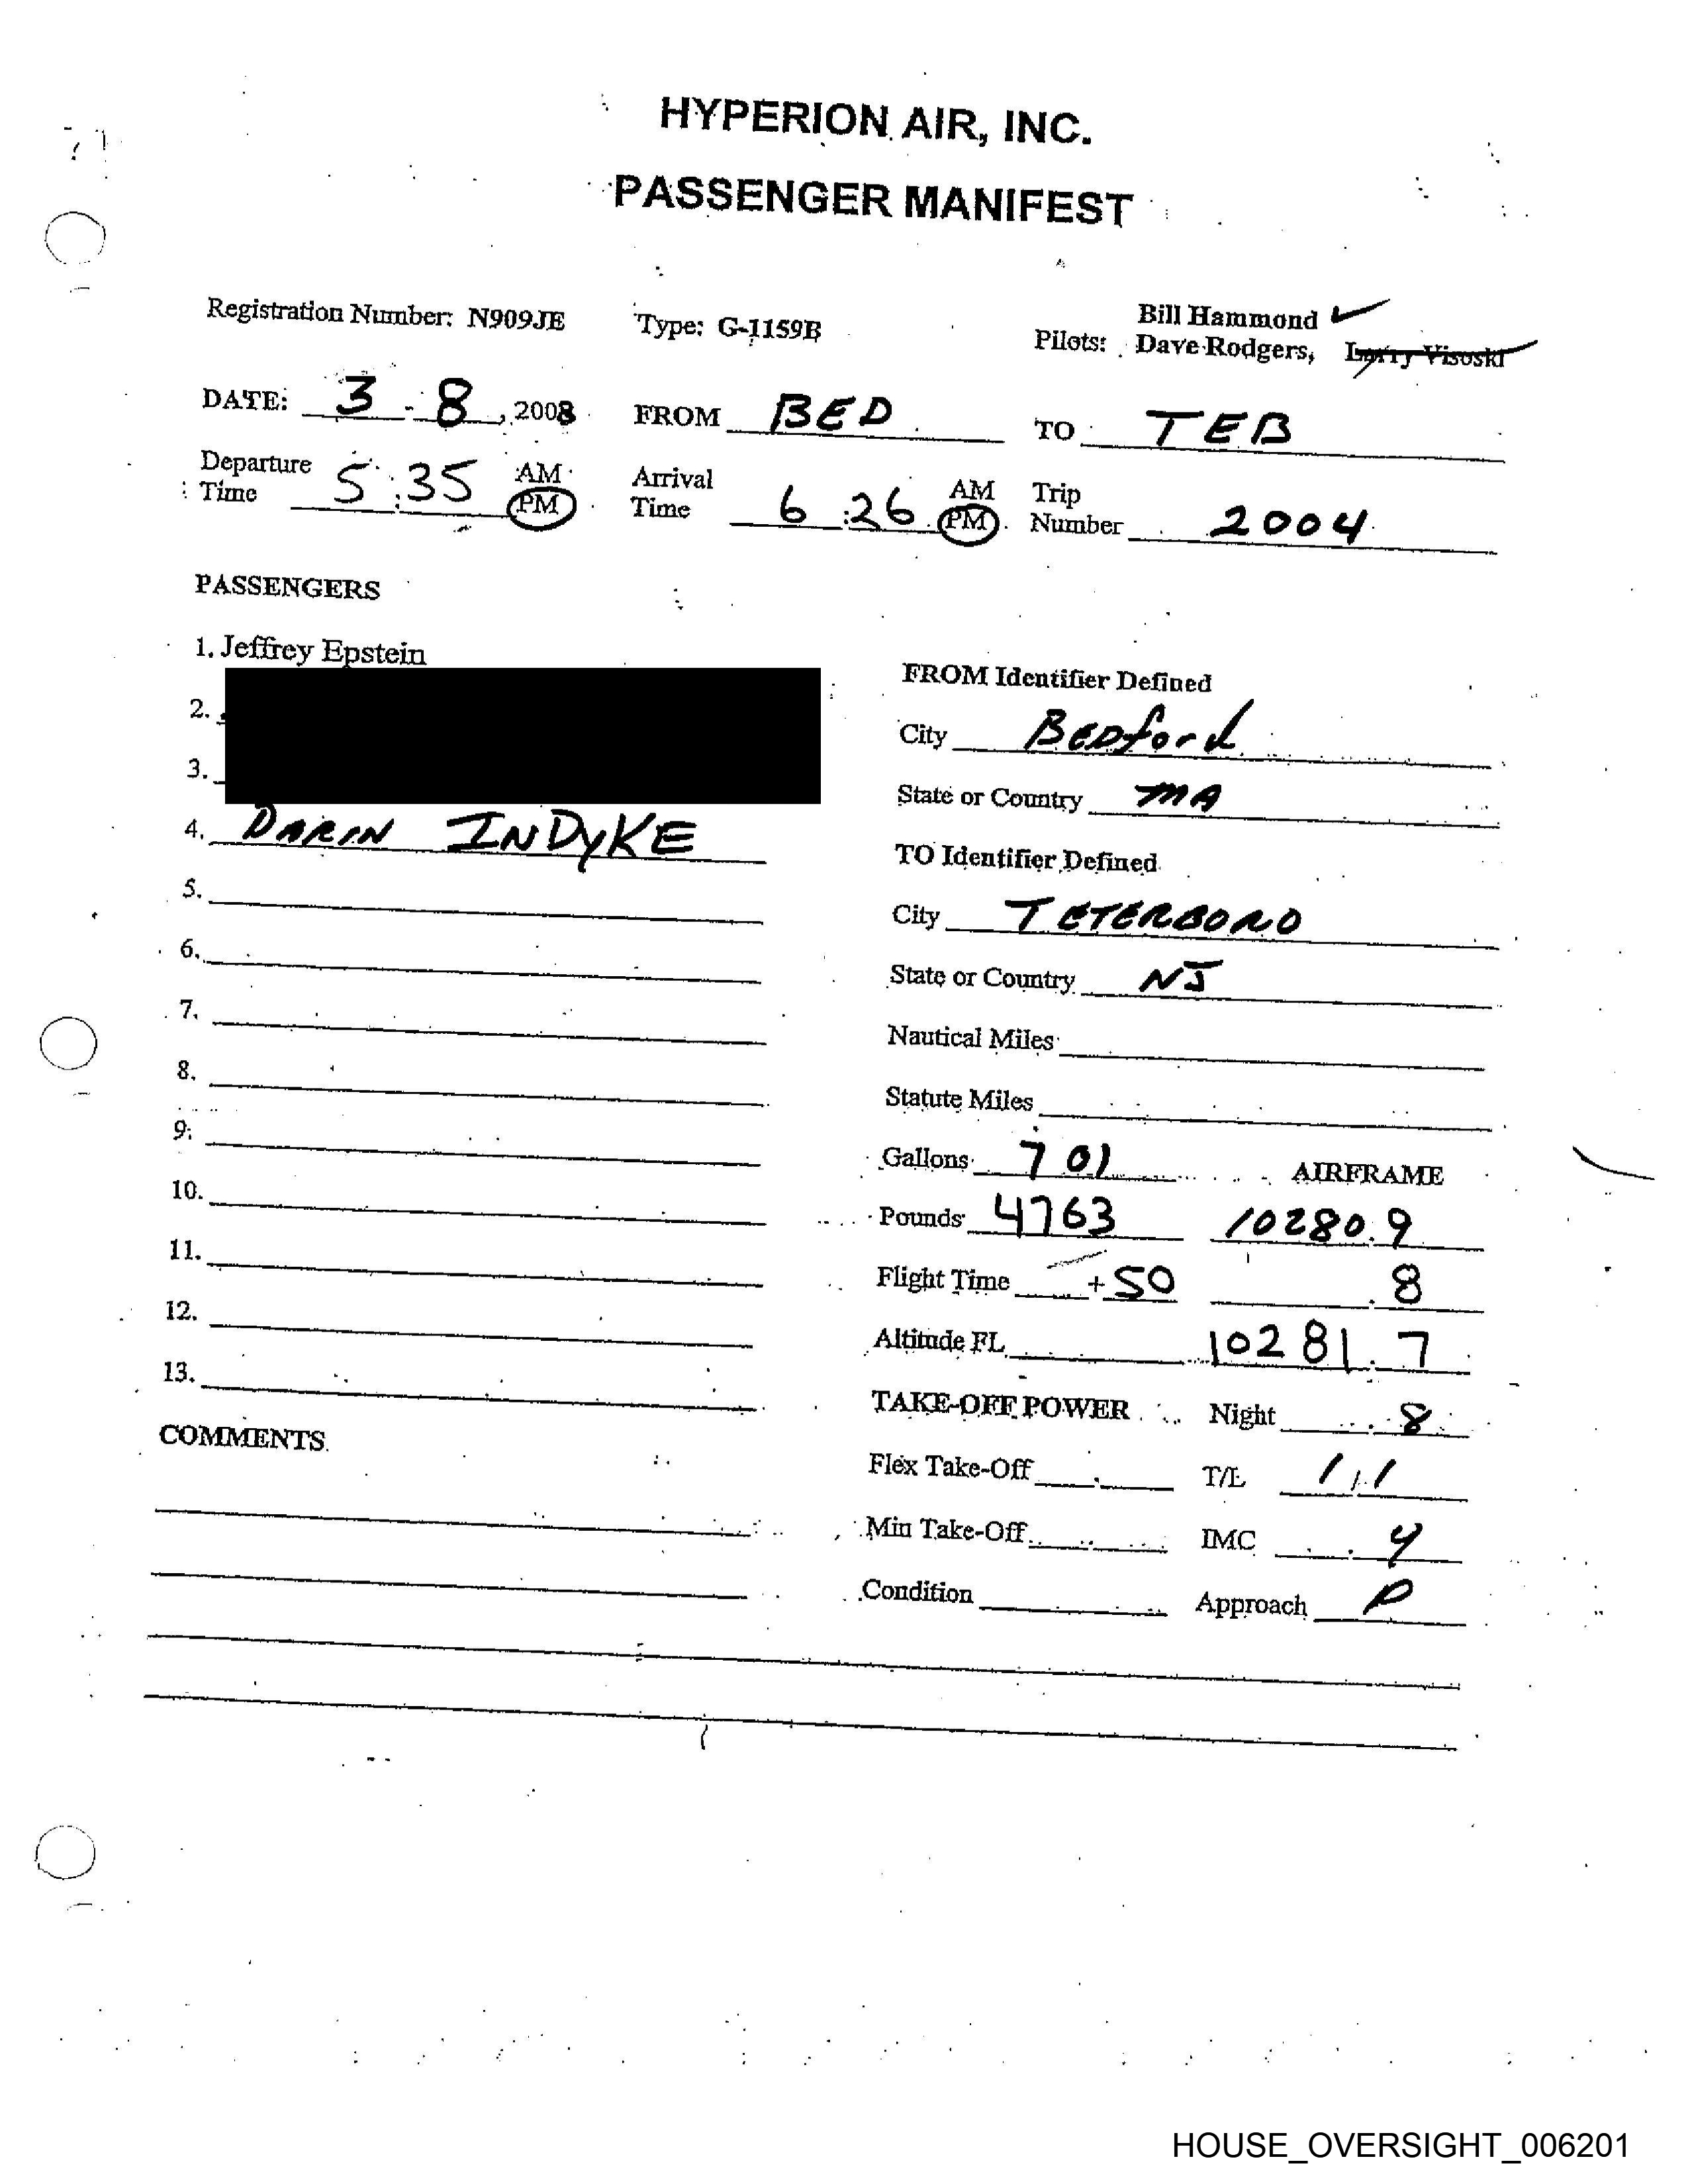 HYPERION AIR, INC.
PASSENGER MANIFEST
Registration Number: N909JE Type: G-1159B Pilots: Bill Hammond ✓
Dave Rodgers, Larry Visoski
DATE: 3 - 8, 2008 FROM BED TO TEB
Departure Time 5:35 AM PM Arrival Time 6:26 AM PM Trip Number 2004
PASSENGERS
1. Jeffrey Epstein
2.
3.
4. DARIN INDYKE
5.
6.
7.
8.
9.
10.
11.
12.
13.
COMMENTS
FROM Identifier Defined
City BEDford
State or Country MA
TO Identifier Defined
City TETERBORO
State or Country NJ
Nautical Miles
Statute Miles
Gallons 701 AIRFRAME
Pounds 4763 10280.9
Flight Time +50 .8
Altitude FL 10281.7
TAKE-OFF POWER Night .8
Flex Take-Off T/L 1/1
Min Take-Off IMC .4
Condition Approach P
HOUSE_OVERSIGHT_006201